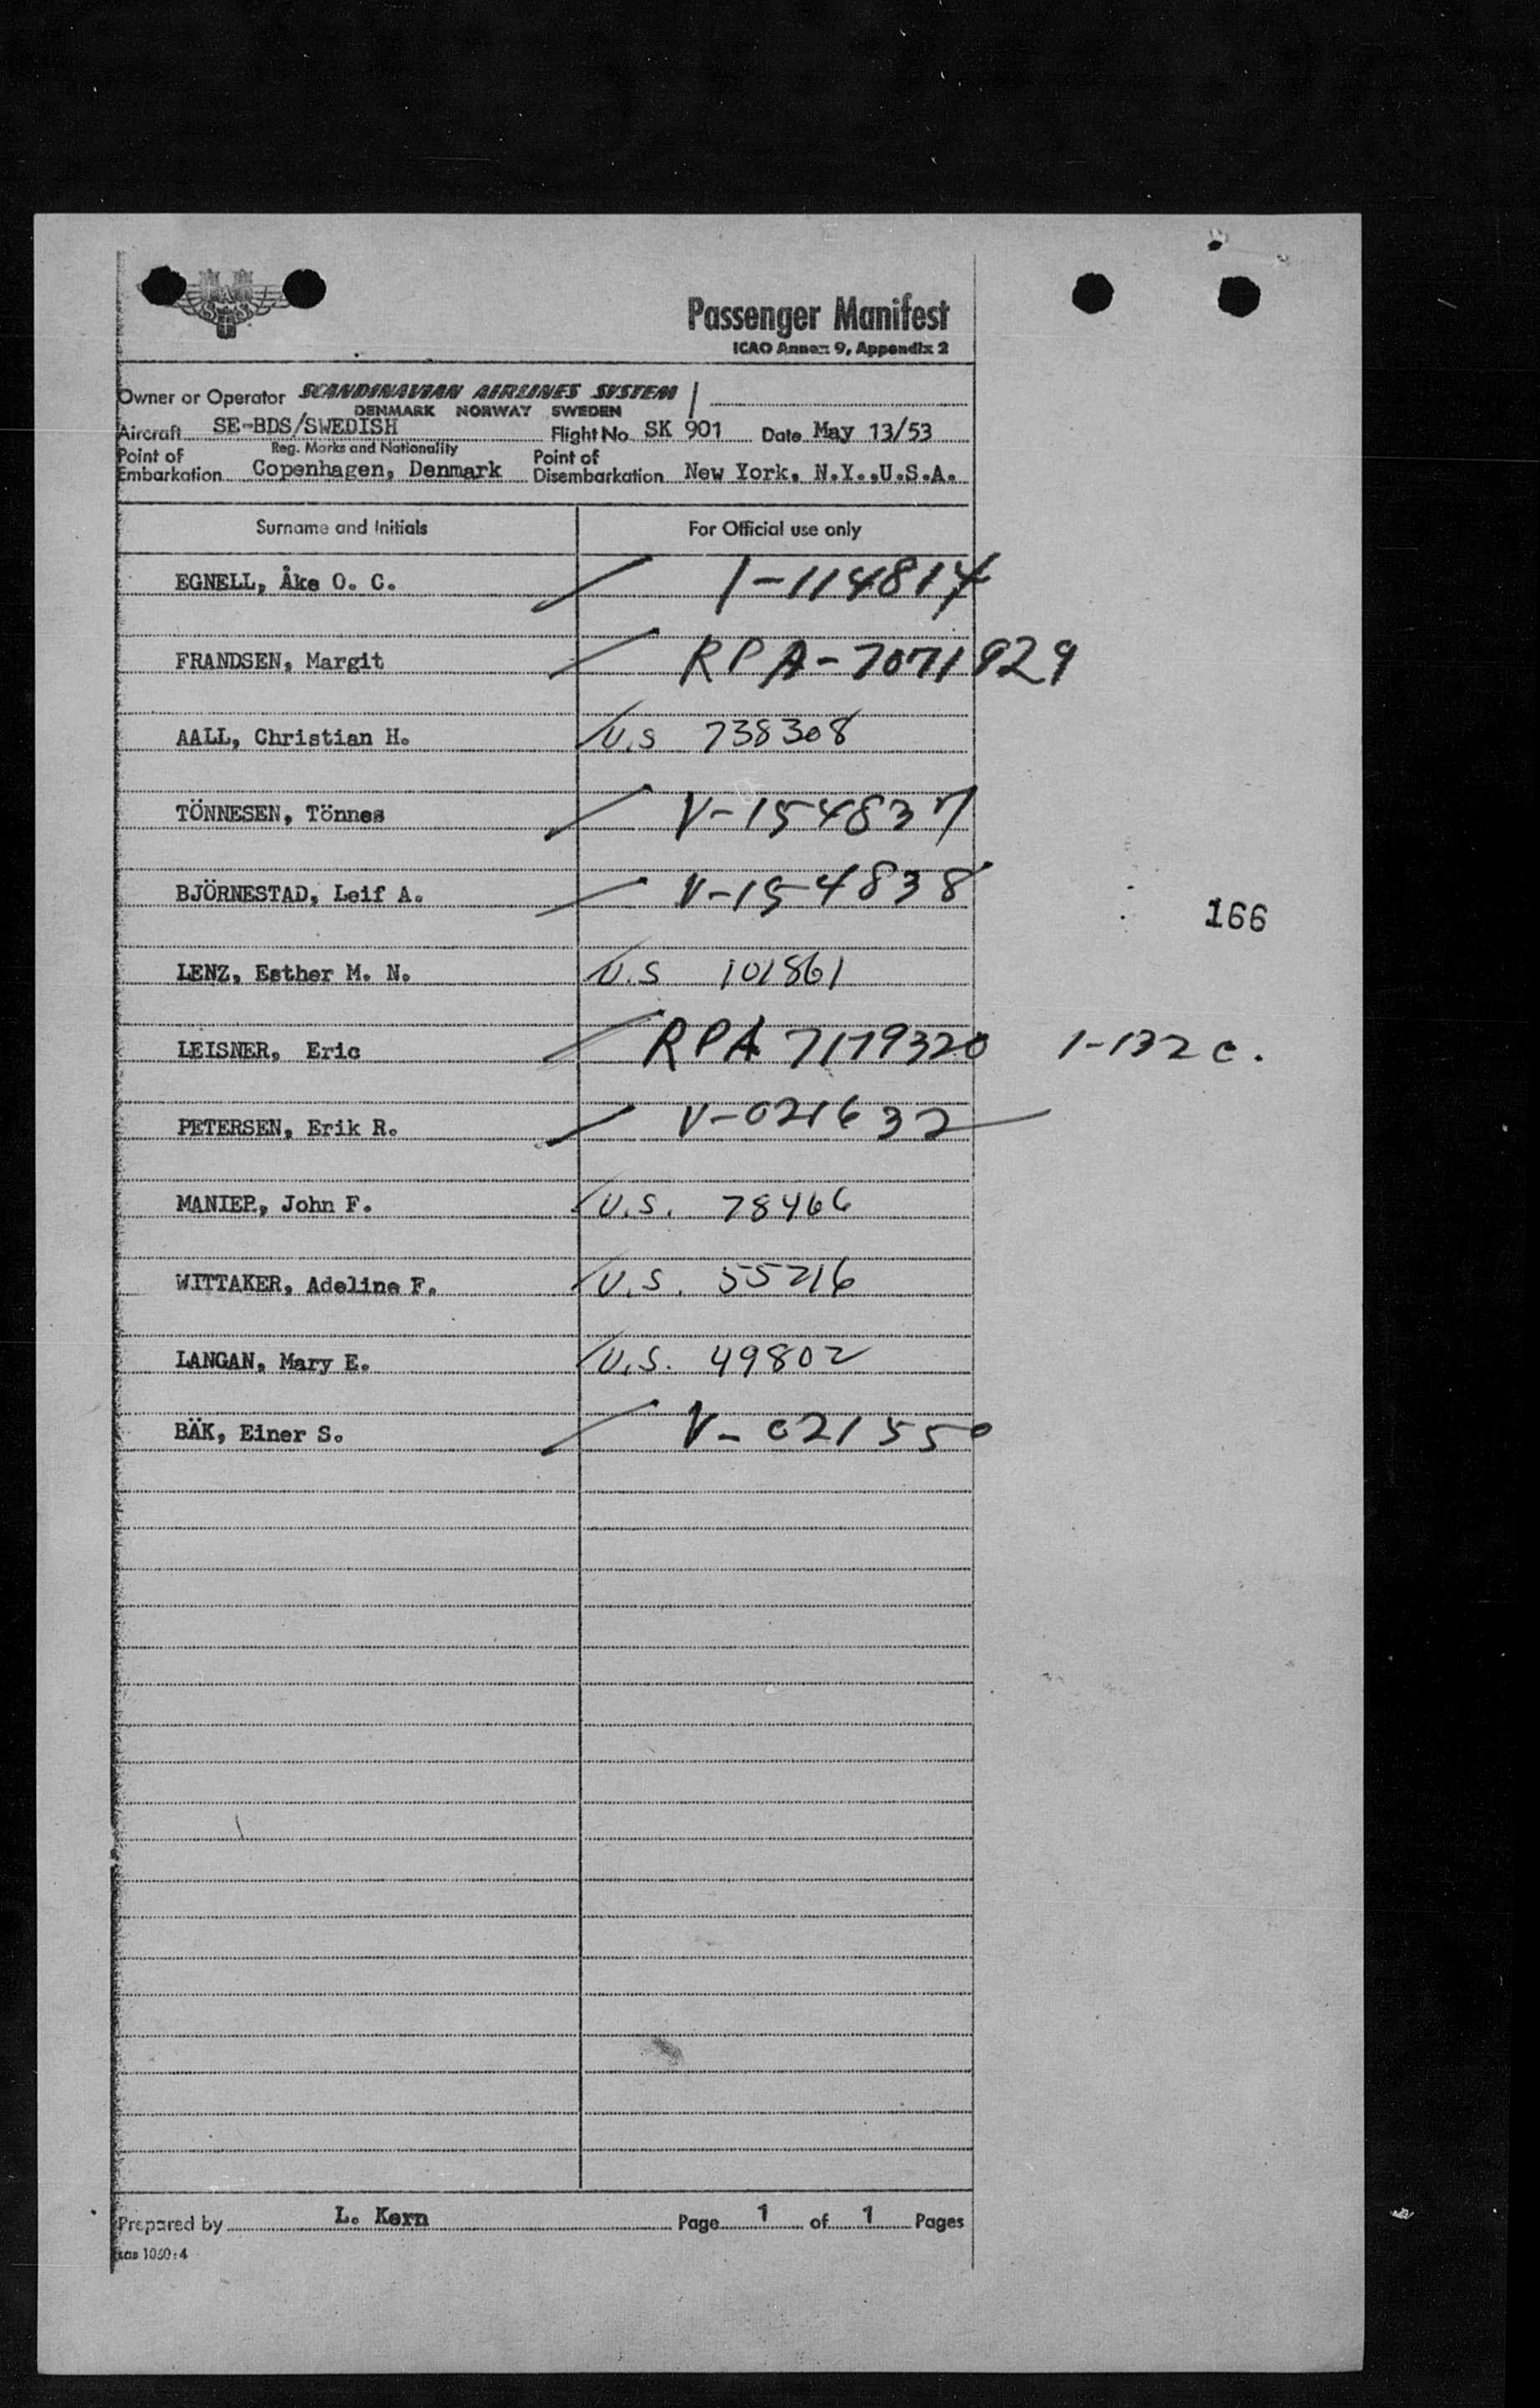 Passenger Manifest
ICAO Annex 9, Appendix 2
Owner or Operator SCANDINAVIAN AIRLINES SYSTEM
DENMARK NORWAY SWEDEN
Aircraft SE-BDS/SWEDISH Flight No. SK 901 Date May 13/53
Reg. Marks and Nationality
Point of Embarkation Copenhagen, Denmark Point of Disembarkation New York, N.Y.,U.S.A.
Surname and Initials For Official use only
EGNELL, Åke O. C. 1-114814
FRANDSEN, Margit RPA-7071929
AALL, Christian H. U.S 738308
TÖNNESEN, Tönnes V-154837
BJÖRNESTAD, Leif A. V-154838
166
LENZ, Esther M. N. U.S 101861
LEISNER, Eric RPA 7179320 1-132 c.
PETERSEN, Erik R. V-021632
MANIER, John F. U.S. 78466
WITTAKER, Adeline F. U.S. 55216
LANGAN, Mary E. U.S. 49802
BÄK, Einer S. V-021550
Prepared by L. Kern Page 1 of 1 Pages
sas 1050:4